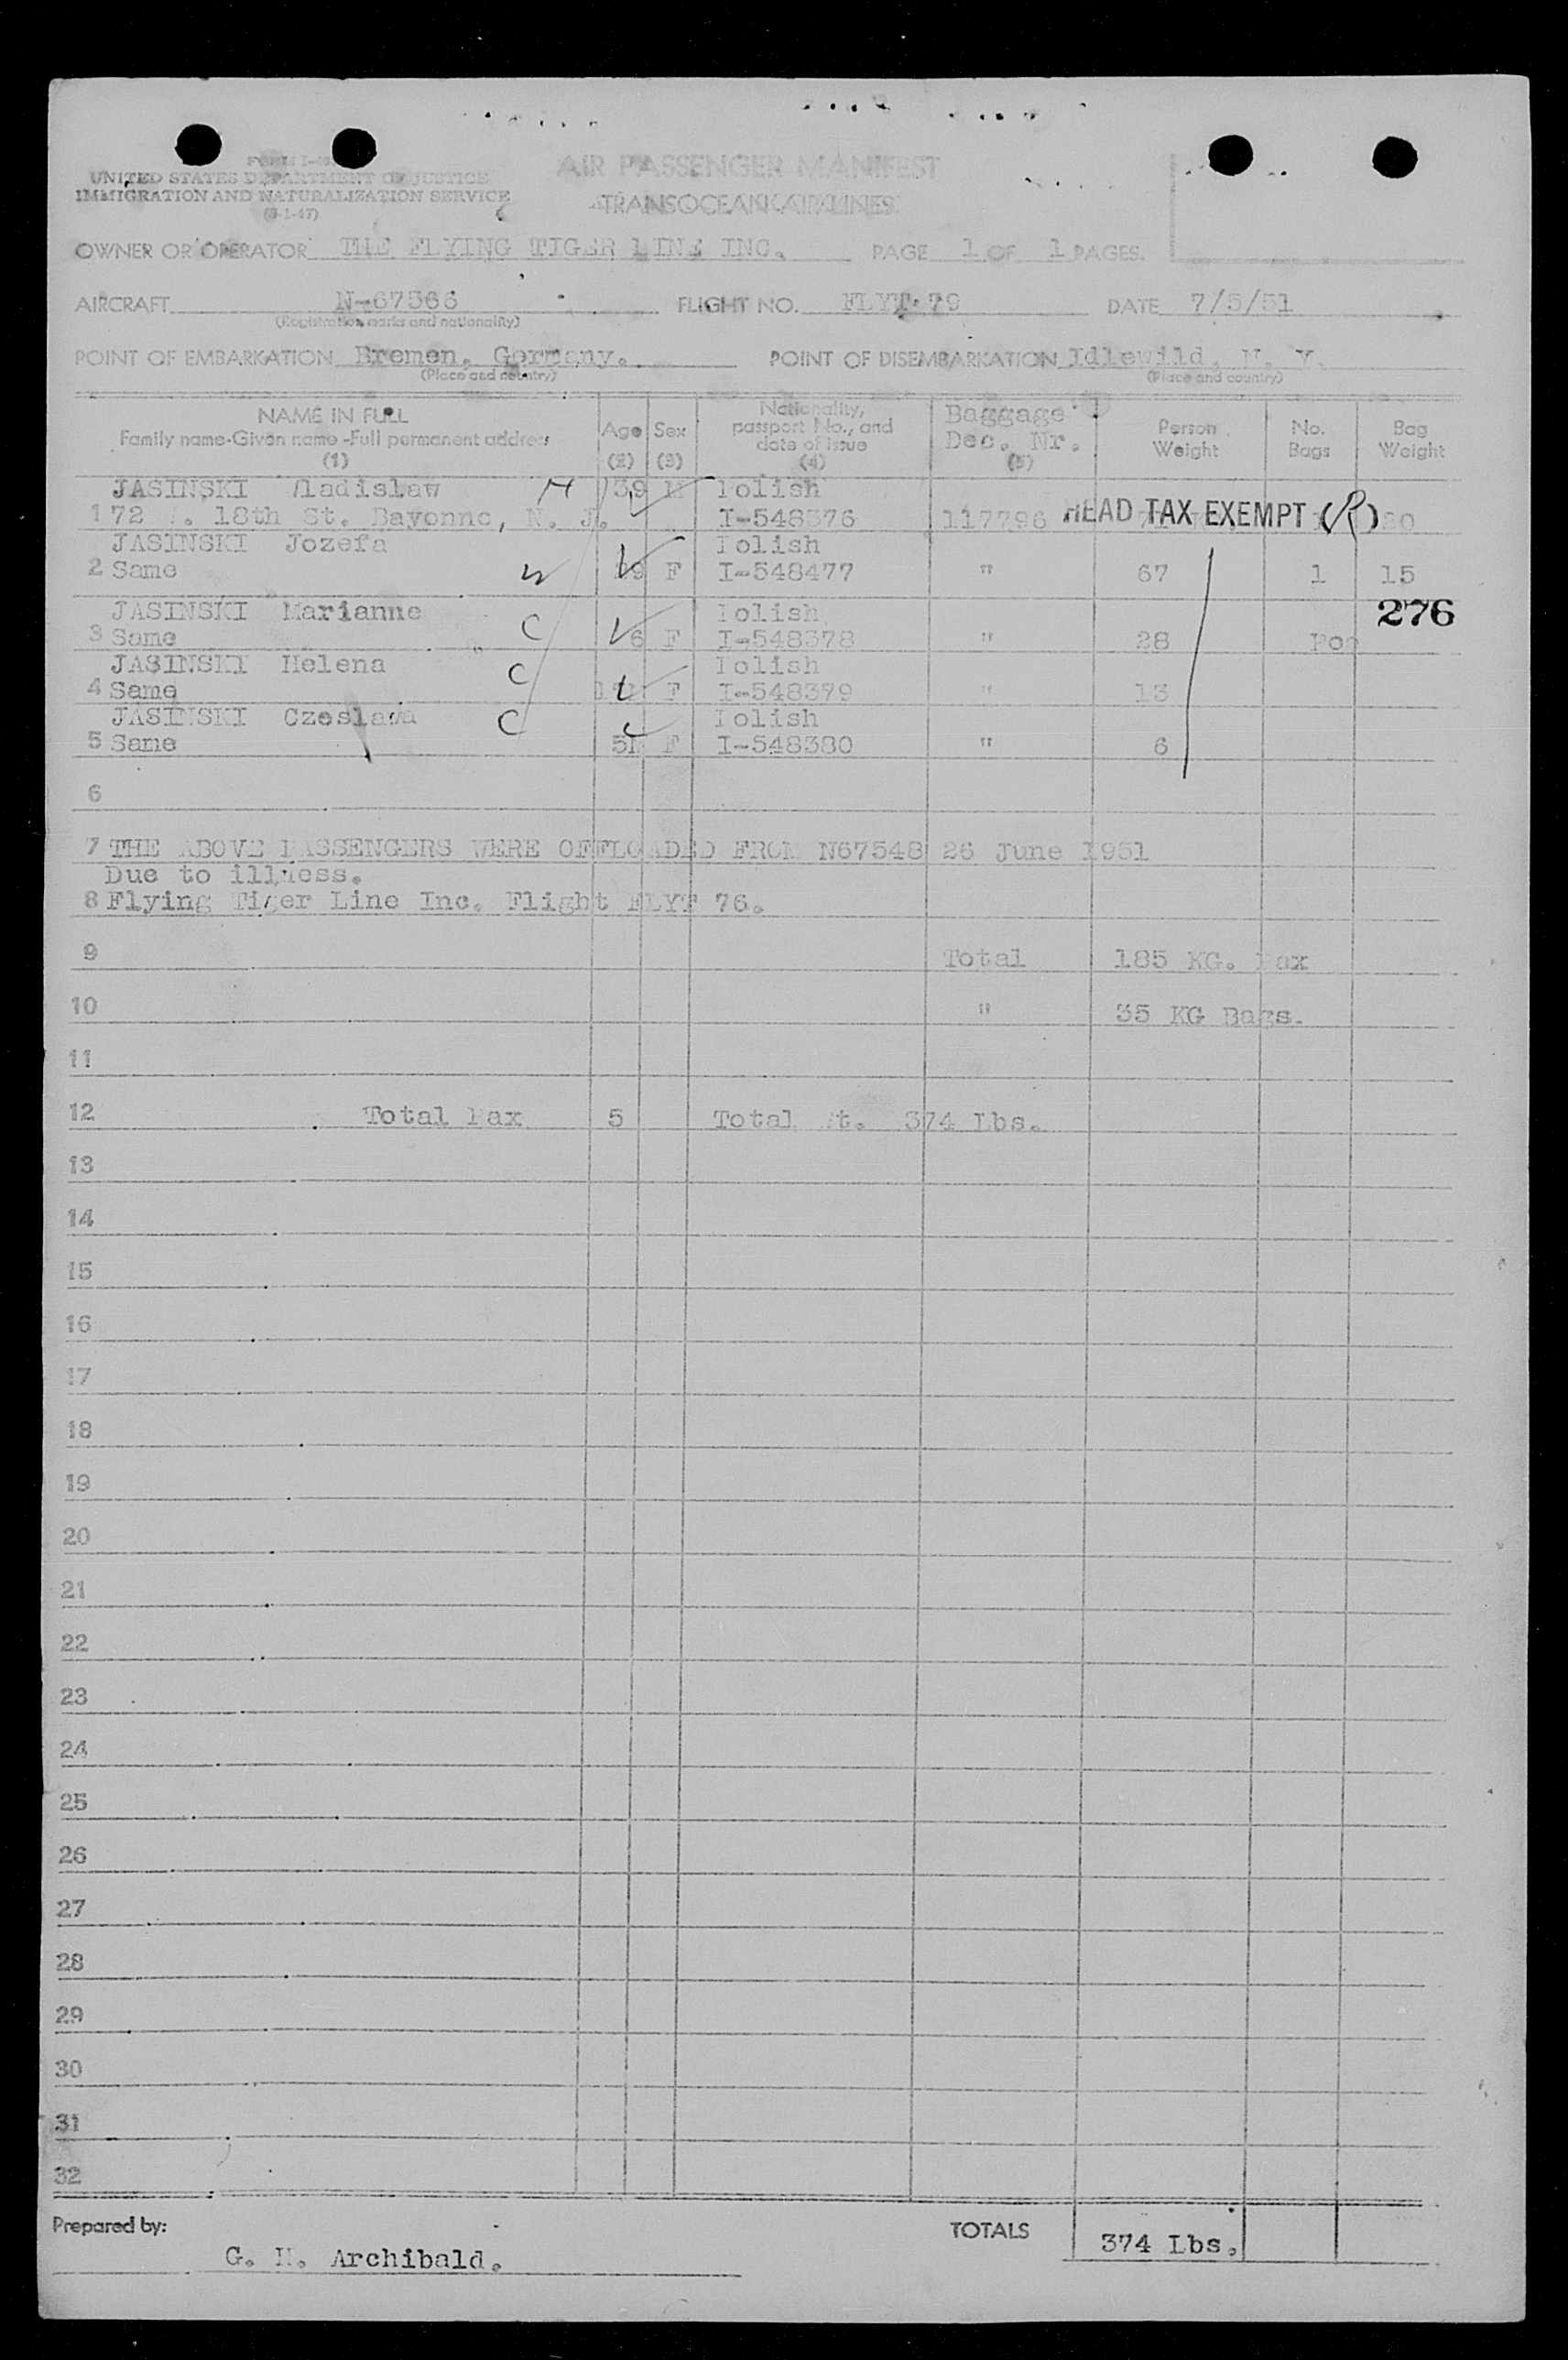 UNITED STATES DEPARTMENT OF JUSTICE
IMMIGRATION AND NATURALIZATION SERVICE
AIR PASSENGER MANIFEST
TRANSOCEAN AIR LINES
OWNER OR OPERATOR THE FLYING TIGER LINE INC. PAGE 1 OF 1 PAGES.
AIRCRAFT N-67566 FLIGHT NO. FLYT 79 DATE 7/5/51
(Registration marks and nationality)
POINT OF EMBARKATION Bremen, Germany. POINT OF DISEMBARKATION Idlewild, N. Y.
(Place and country) (Place and country)
NAME IN FULL
Family name-Given name-Full permanent address
(1)
Age
(2)
Sex
(3)
Nationality,
passport No., and
date of issue
(4)
Baggage
Dec. Nr.
(5)
Person
Weight
No.
Bags
Bag
Weight
JASINSKI Wladislaw H 39 M Polish
1 72 W. 18th St. Bayonne, N. J. I-548376 117796 HEAD TAX EXEMPT (R)
JASINSKI Jozefa Polish
2 Same W F I-548477 " 67 1 15
276
JASINSKI Marianne C Polish
3 Same 6 F I-548378 " 28
JASINSKI Helena C Polish
4 Same F I-548379 " 13
JASINSKI Czeslawa C Polish
5 Same F I-548380 " 6
6
7 THE ABOVE PASSENGERS WERE OFFLOADED FROM N67548 26 June 1951
Due to illness.
8 Flying Tiger Line Inc. Flight FLYT 76.
9 Total 185 KG. Pax
10 " 35 KG Bags.
11
12 Total Pax 5 Total Wt. 374 Lbs.
13
14
15
16
17
18
19
20
21
22
23
24
25
26
27
28
29
30
31
32
Prepared by: TOTALS 374 Lbs.
G. H. Archibald.